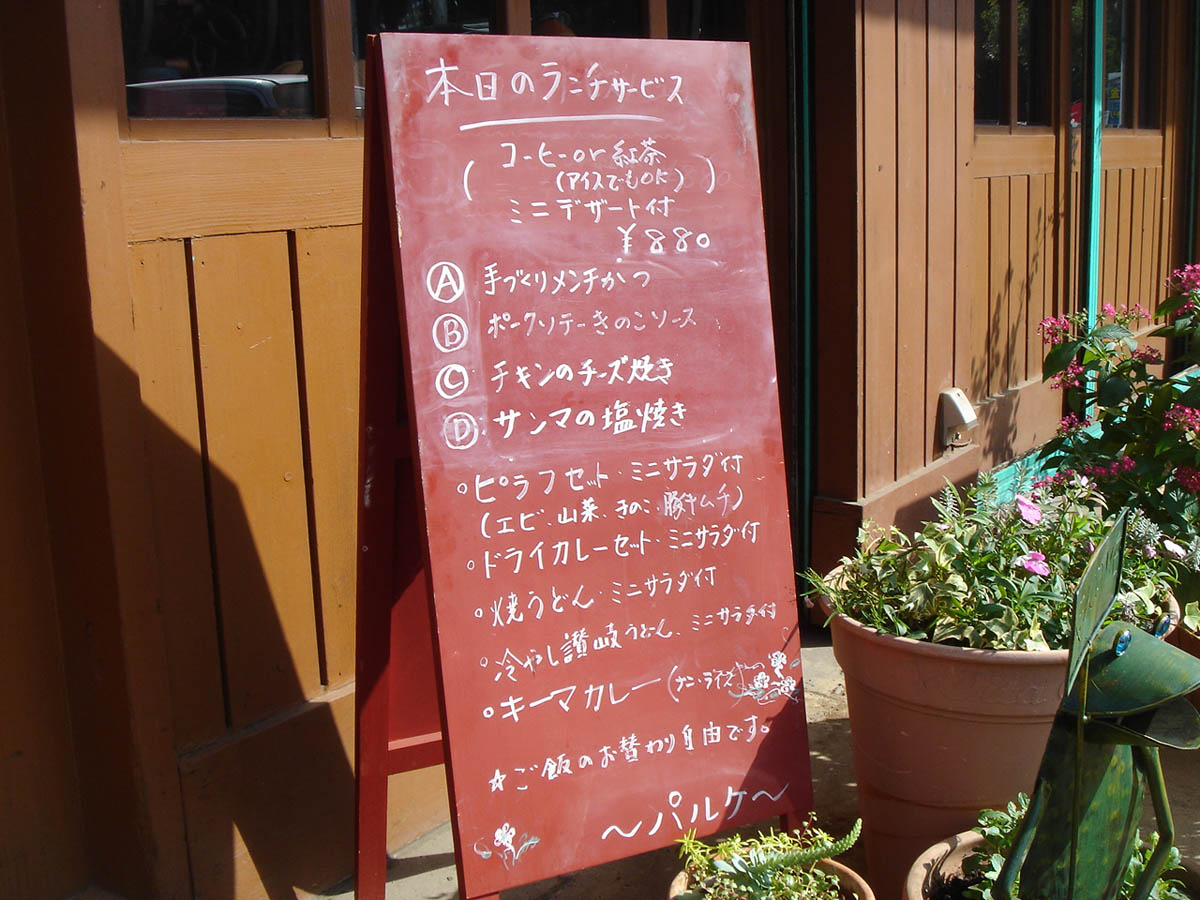 本日のランチサービス
(コーヒーor紅茶
(アイスでもOK))
ミニデザート付
¥880
Ⓐ 手づくりメンチかつ
Ⓑ ポークソテーきのこソース
Ⓒ チキンのチーズ焼き
Ⓓ サンマの塩焼き
○ピラフセット・ミニサラダ付
(エビ、山菜、きのこ・豚キムチ)
○ドライカレーセット・ミニサラダ付
○焼うどん・ミニサラダ付
○冷やし讃岐うどん、ミニサラダ付
○キーマカレー(ナン・ライス)
☆ご飯のお替わり自由です。
〜パルケ〜